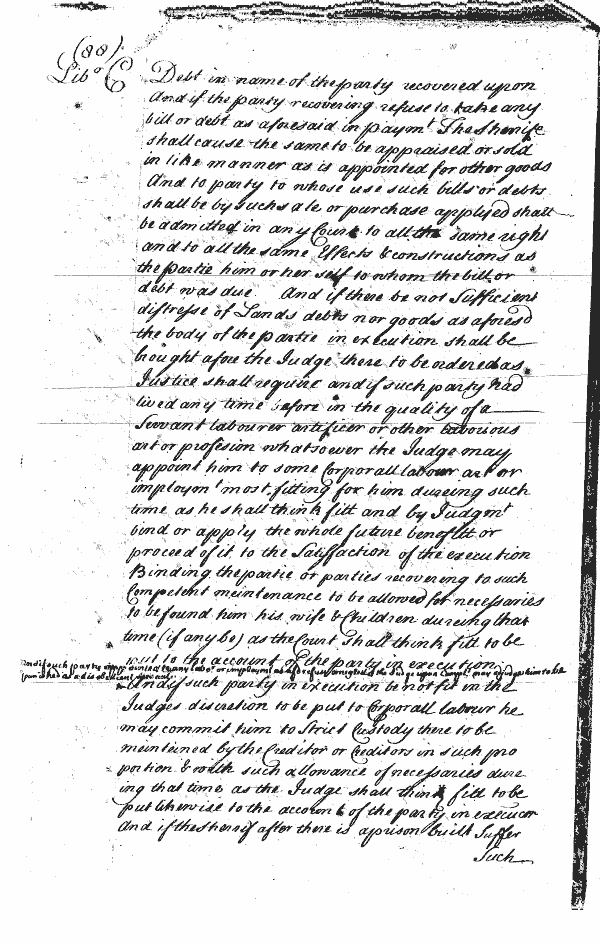 (88)
Libo C
Debt in name of the party recovered upon
And if the party recovering refuse to take any
bill or debt as aforesaid in paymt The Sheriffe
shall cause the same to be appraised or sold
in like manner as is appointed for other goods
And to party to whose use such bills or debts
shall be by such sale or purchase applyed shall
be admitted in any Court to all the same right
and to all the same Effects & constructions as
the partie him or her self to whom the bill or
debt was due And if there be not Sufficient
distresse of Lands debts nor goods as aforesd
the body of the partie in execution shall be
bought afore the Judge there to be ordered as
Justice shall require and if such party had
lived any time before in the quality of a
Servant labourer artificer or other laborious
art or profesion whatsoever the Judge may
appoint him to some Corporall labour art or
imploymt most fitting for him dureing such
time as he shall think fitt and by Judgmt
bind or apply the whole future benefitt or
proceed of it to the Satisfaction of the execution
Binding the partie or parties recovering to such
Competent maintenance to be allowed for necessaries
to be found him his wife & Children dureing that
time (if any be) as the Court Shall think fitt to be
put to the account of the party in execution
And if such party to any labor or imploymt as afd the Judge upon may adjudge him to be
punished as a disobedient
And if such party in execution be not fit in the
Judges discretion to be put to Corporall labour he
may commit him to Strict Custody there to be
maintained by the Creditor or Creditors in such pro
portion & with such allowance of necessaries dure
ing that time as the Judge shall think fitt to be
put likewise to the account of the party in execucon
And if the Sherrif after there is a prison built Suffer
Such